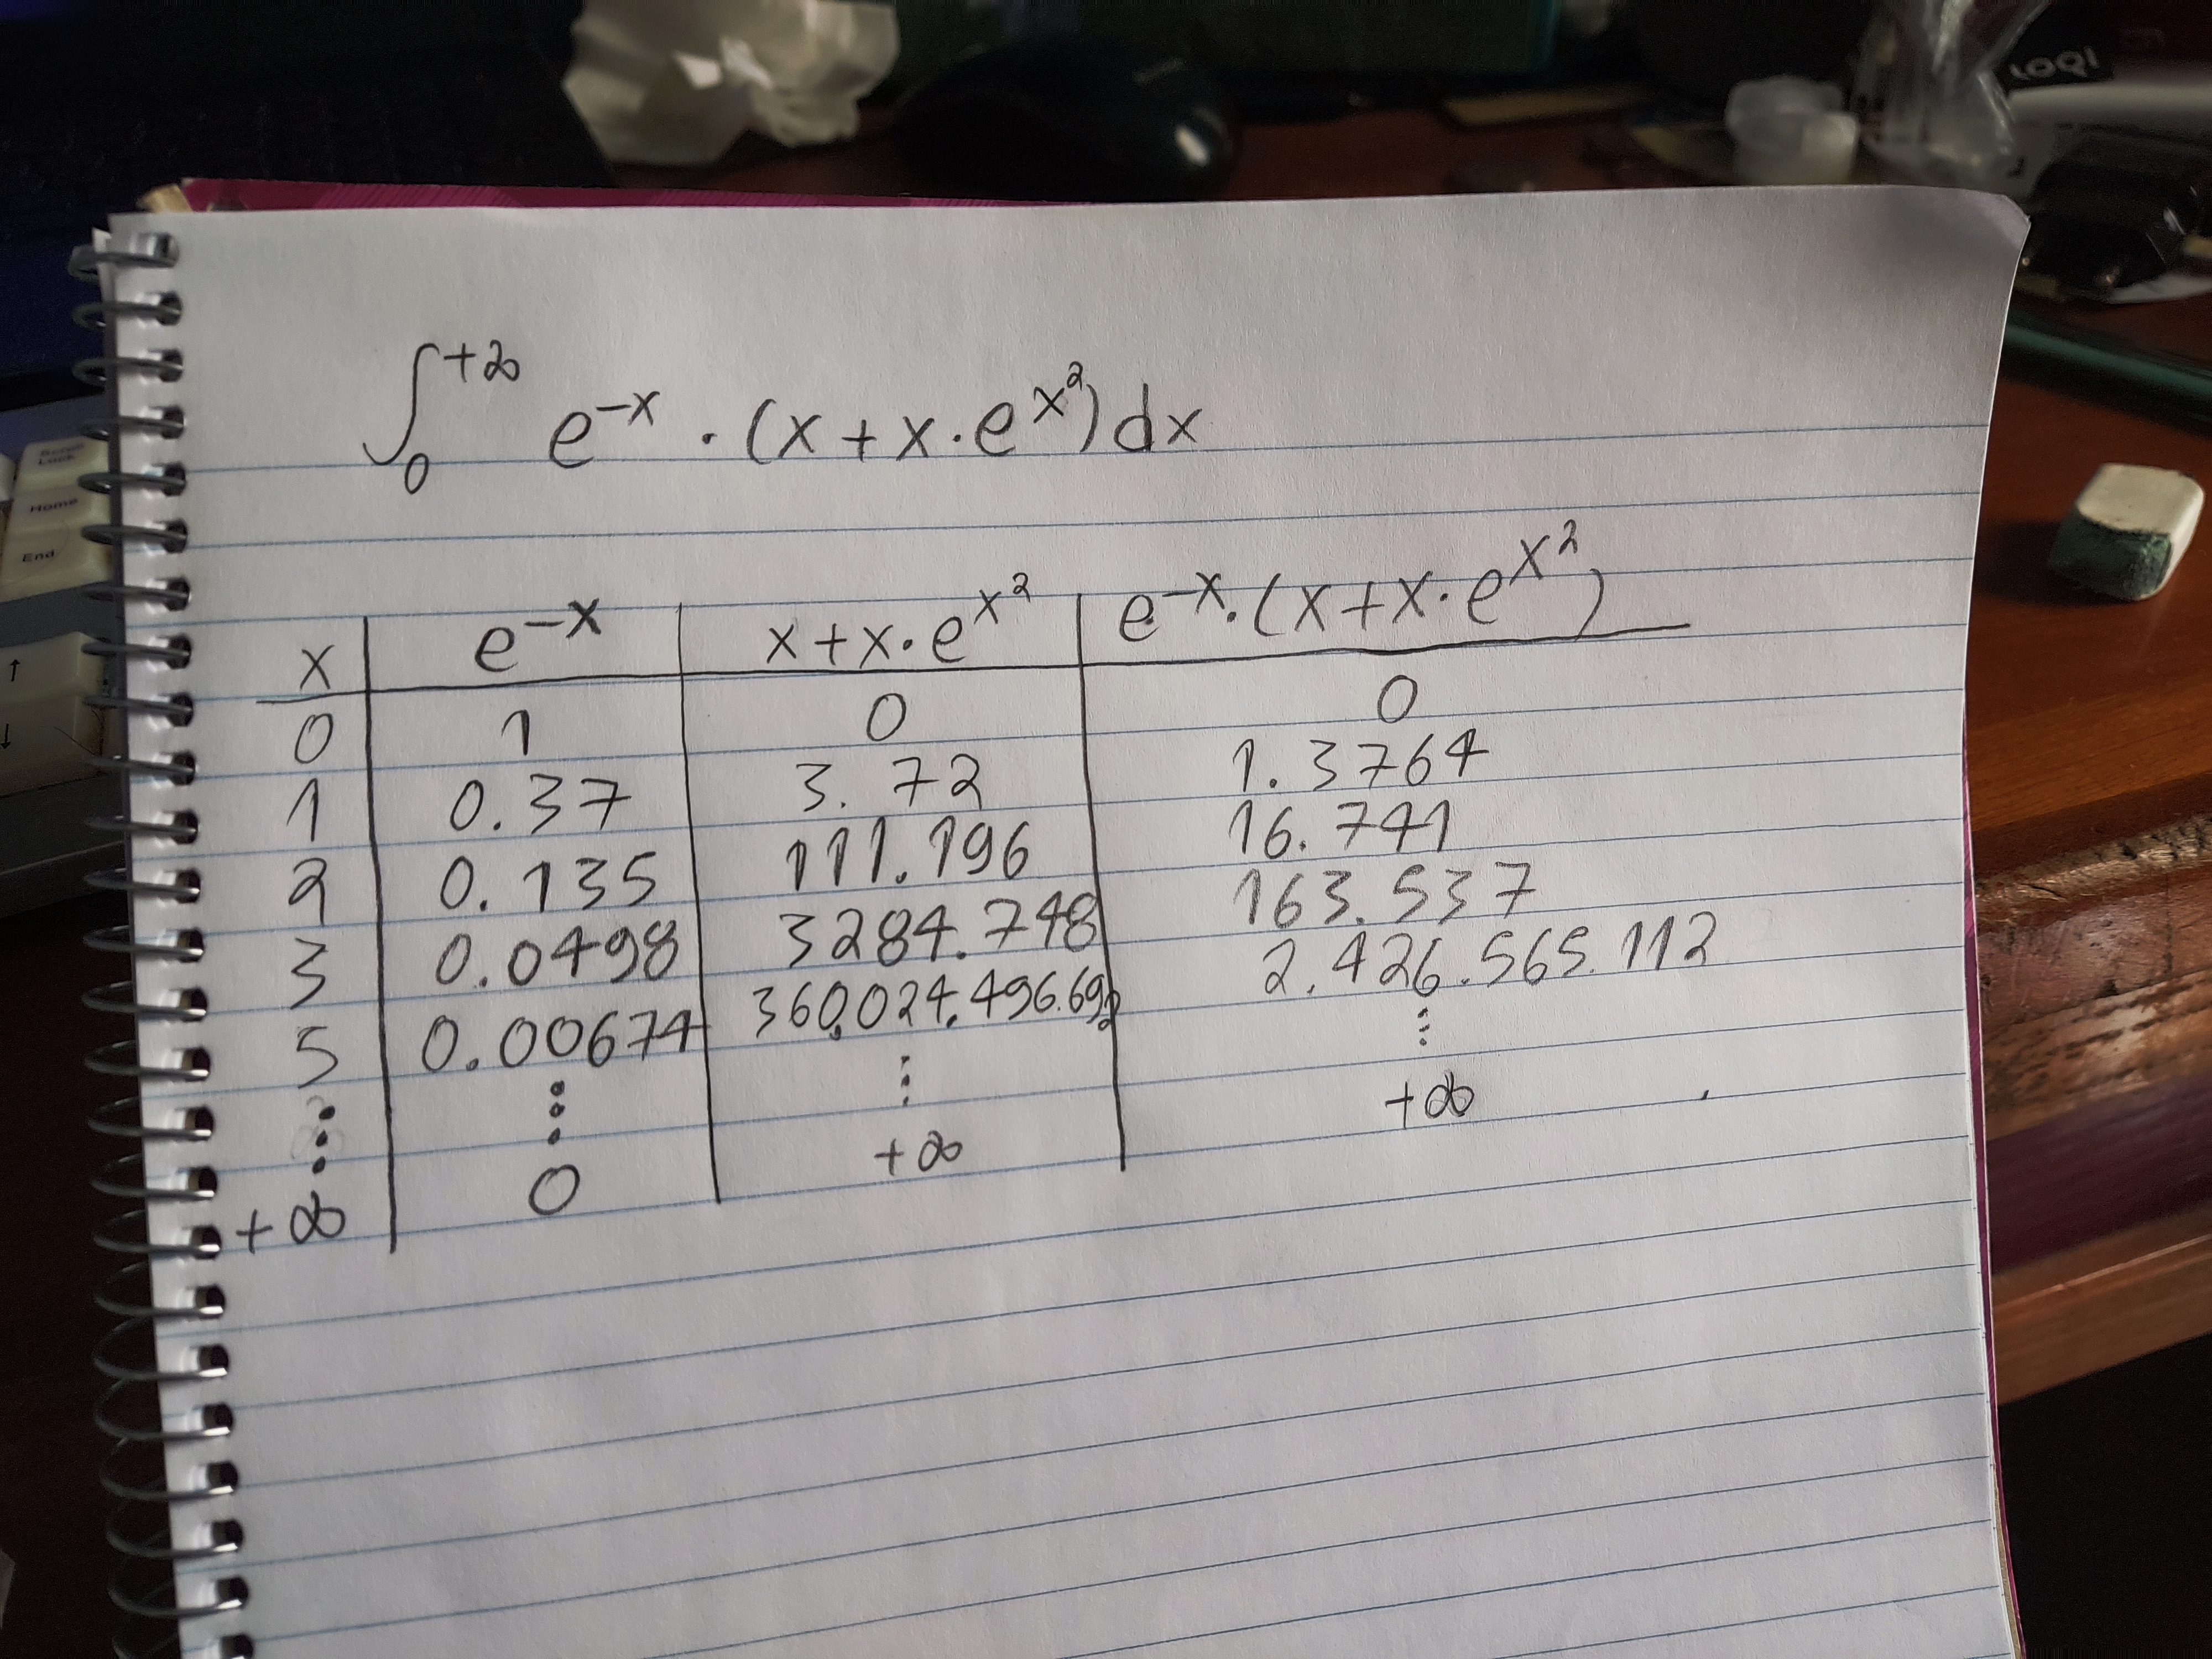 LOQI
Scroll
Lock
Home
End
↑
↓
∫₀^{+∞} e^{-x} · (x + x · e^{x²}) dx
x | e^{-x} | x + x · e^{x²} | e^{-x} · (x + x · e^{x²})
0 | 1 | 0 | 0
1 | 0.37 | 3.72 | 1.3764
2 | 0.135 | 111.196 | 16.741
3 | 0.0498 | 3284.748 | 163.537
5 | 0.00674 | 360.024.496.692 | 2.426.565.112
⋮ | ⋮ | ⋮ | ⋮
+∞ | 0 | +∞ | +∞